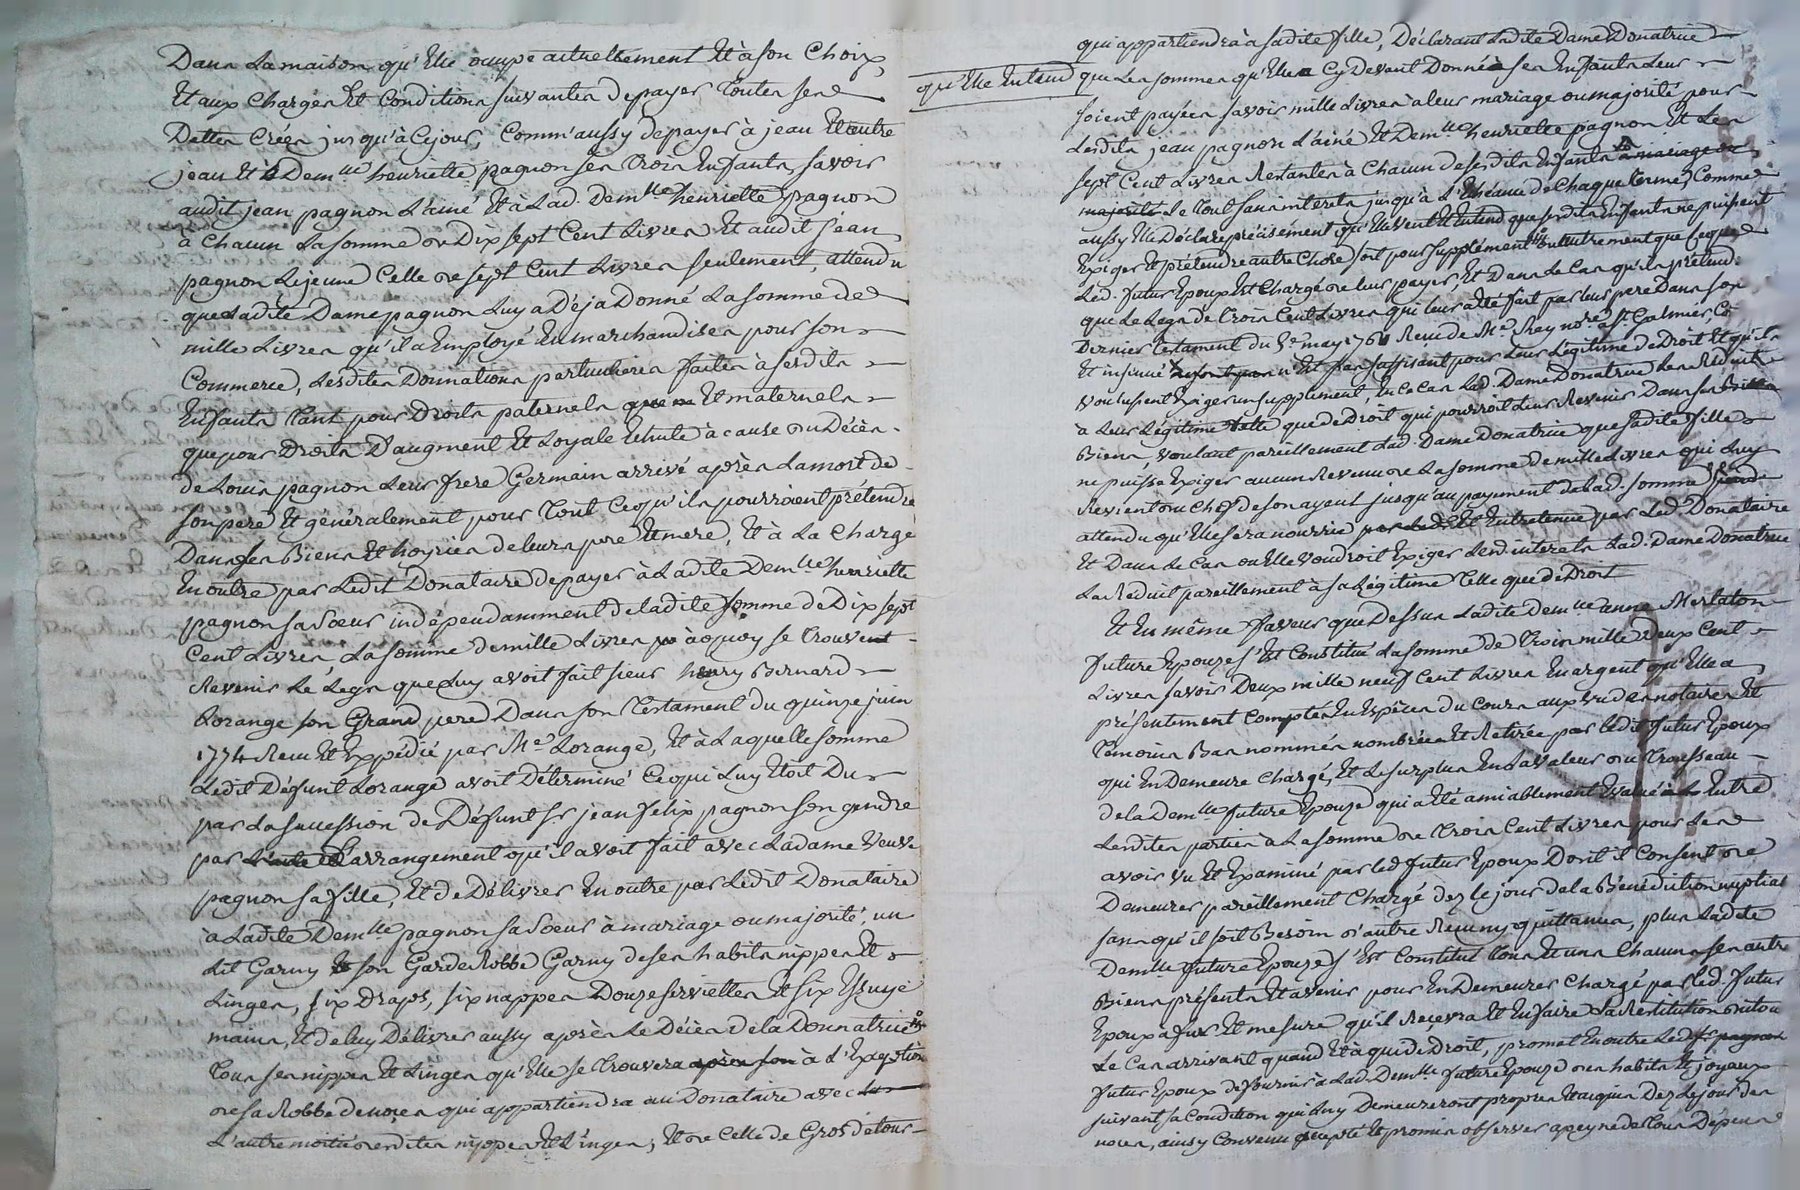 Dans La maison qu'Elle ocupe actuellement Et à son Choix,
Et aux Charges Et Conditions suivantes de payer Toutes ses
Dettes Créés jusqu'à Cejour, Comm'aussy de payer à jean Et autre
jean Et à Dem.lle henriette pagnon ses Trois Enfants, savoir
audit jean pagnon L'ainé Et à Lad. Dem.lle henriette pagnon
à Chacun La somme de Dix sept Cent Livres Et audit s.r jean
pagnon Lejeune Celle de sept Cent Livres seulement, attendu
que Ladite Dame pagnon Luy a Déja Donné La somme de
mille Livres qu'il a Employé En marchandises pour son
Commerce, Lesdites Donnations particulieres faites à sesdits
Enfants Tant pour Droits paternels que Et maternels
que pour Droits D'augment Et Loyale Echute à cause du Décès
de Louis pagnon Leur frere Germain arrivé après La mort de
son pere Et généralement pour Tout Cequ'ils pourroient prétendre
Dans les Biens Et hoyries de leurs pere Et mere, Et à La Charge
En outre par Ledit Donataire de payer à Ladite Dem.lle henriette
pagnon sa Soeur indépendamment de ladite somme de Dix sept
Cent Livres La somme de mille Livres à quoy se Trouvent
Revenir Le Legs que Luy avoit fait sieur henry Bernard
Lorange son Grand pere Dans son Testament du quinze juin
1774 Recu Et Expédié par M.e Lorange, Et à Laquelle somme
Ledit Défunt Lorange avoit Déterminé Cequi Luy Etoit Du
par La succession de Défunt s.r jean felix pagnon son gendre
par L'arrangement qu'il avoit fait avec Ladame Veuve
pagnon sa fille, Et de Délivrer En outre par Ledit Donataire
à Ladite Dem.lle pagnon sa Soeur à mariage ou majorité, un
Lit Garny son GardeRobbe Garny de ses habits nippes Et
Linges, six Draps, six nappes Douze serviettes Et six Essuye
mains, Et de luy Délivrer aussy après Le Décès de la Donnatrice
Tous ses nippes Et Linges qu'Elle se Trouvera après son à L'Exeption
de sa Robbe de noces qui appartiendra au Donataire avec
L'autre moitié desdites nippes Et Linges, Et de Celle de Gros de tour
qui appartiendra à sadite fille, Déclarant Ladite Dame Donatrice
qu'Elle Entend que Les sommes qu'Elle a Cy Devant Donné à ses Enfants Leur
soient payées savoir mille Livres à leur mariage ou majorité pour
Lesdits jean pagnon L'ainé Et Dem.lle henriette pagnon Et Les
sept Cent Livres Restantes à Chacun desesdits Enfants à mariage ou
majorité Le Tout sans interets jusqu'à L'Echéance de Chaque Terme, Comme
aussy Elle Déclare précisement qu'Elle Veut Et Entend que sesdits Enfants ne puissent
Exiger Et prétendre autre Chose soit pour supplément ou autrement que Ceque
Led. futur Epoux Est Chargé de leur payer, Et Dans Le Cas qu'ils prétend.
que Le Legs de Trois Cent Livres qui leur a Eté fait par leur pere Dans son
Dernier Testament du 3.e may 176 Recu de M.e Rey no.re à S.t Galmier, Co
Et insinué n'Est pas suffisant pour Leur Légitime de Droit Et qu'ils
Voulussent Exiger un supplement, En Ce Cas Lad. Dame Donatrice Les Réduit
à Leur Légitime Telle que de Droit qui pourroit Leur Revenir Dans ses
Biens, voulant pareillement Lad. Dame Donatrice que sadite fille
ne puisse Exiger aucun Revenu de La somme de mille Livres qui Luy
Revient du Chef de son ayeul jusqu'au payement de Lad. somme
attendu qu'Elle sera nourrie Et Entretenue par Led. Donataire
Et Dans Le Cas ou Elle Voudroit Exiger Lesd. interets Lad. Dame Donatrice
La Réduit pareillement à sa Légitime Telle que de Droit
Et En même faveur que Dessus Ladite Dem.lle anne Merlaton
future Epouze s'Est Constitué La somme de Trois mille Deux Cent
Livres savoir Deux mille neuf Cent Livres En argent qu'Elle a
présentement Comptés En Espèces du Cours aux vu des notaires Et
Témoins Bas nommés nombrées Et Retirée par Ledit futur Epoux
qui En Demeure Chargé, Et Le surplus En La valeur du Trousseau
de la Dem.lle future Epouze qui a Eté amiablement Evalué Entre
Lesdites parties à La somme de Trois Cent Livres pour Les
avoir Vu Et Examiné par led futur Epoux Dont il Consent de
Demeurer pareillement Chargé dez le jour de la Bénédiction nuptial
sans qu'il soit Besoin d'autre Recu ny quittance, plus Ladite
Dem.lle future Epouze s'Est Constitué Tous Et uns Chacuns ses autre
Biens présents Et avenir pour En Demeurer Chargé par Led. futur
Epoux à fur Et mesure qu'il Recevra Et En faire La Restitution
Le Cas arrivant quand Et à qui de Droit, promet En outre Led. s.r pagnon
futur Epoux de fournir à Lad. Dem.lle future Epouze des habits Et joyaux
suivant sa Condition qui Luy Demeureront propres Et acquis Dez Le jour des
noces, ainsy Convenu accepté Et promis observer a peyne de Tous Dépens